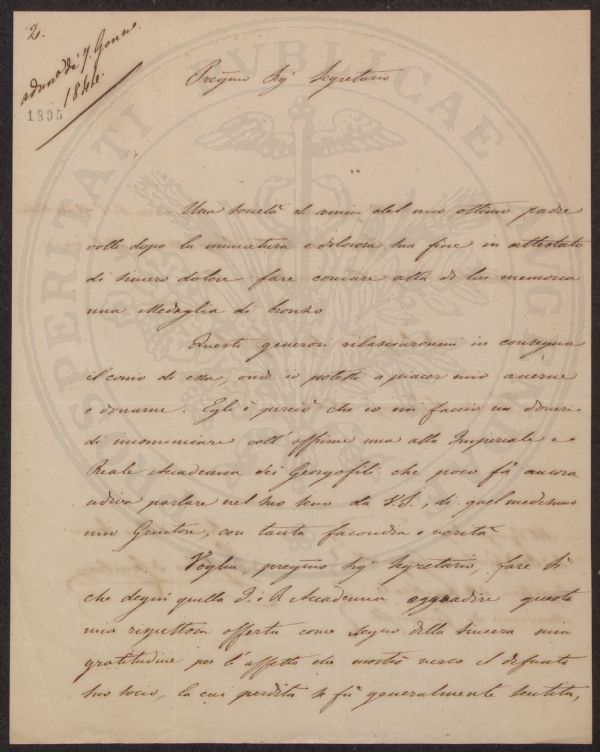 2.
adunª de' 7. Genn.º
1844.
1895
Pregmo Sigr Segretario
Una società di amici del mio ottimo padre
volle dopo la immatura e dolorosa sua fine in attestato
di sincero dolore fare coniare alla di lui memoria
una Medaglia di bronzo
Questi generosi rilasciaronmi in consegna
il conio di essa, onde io potessi a piacer mio averne
e donarne. Egli è perciò che io mi faccio un dovere
di incominciare coll' offrirne una alla Imperiale e
Reale Accademia dei Georgofili che poco fà ancora
udiva parlare nel suo seno da V.S., di quel medesimo
mio Genitore, con tanta facondia e verità
Voglia, pregmo Sigr Segretario, fare sì
che degni quella I. e R. Accademia aggradire questa
mia rispettosa offerta come segno della sincera mia
gratitudine per l'affetto che mostrò verso il defunto
suo socio, la cui perdita si fù generalmente sentita,
PROSPERITATI PUBLICAE AUGENDAE